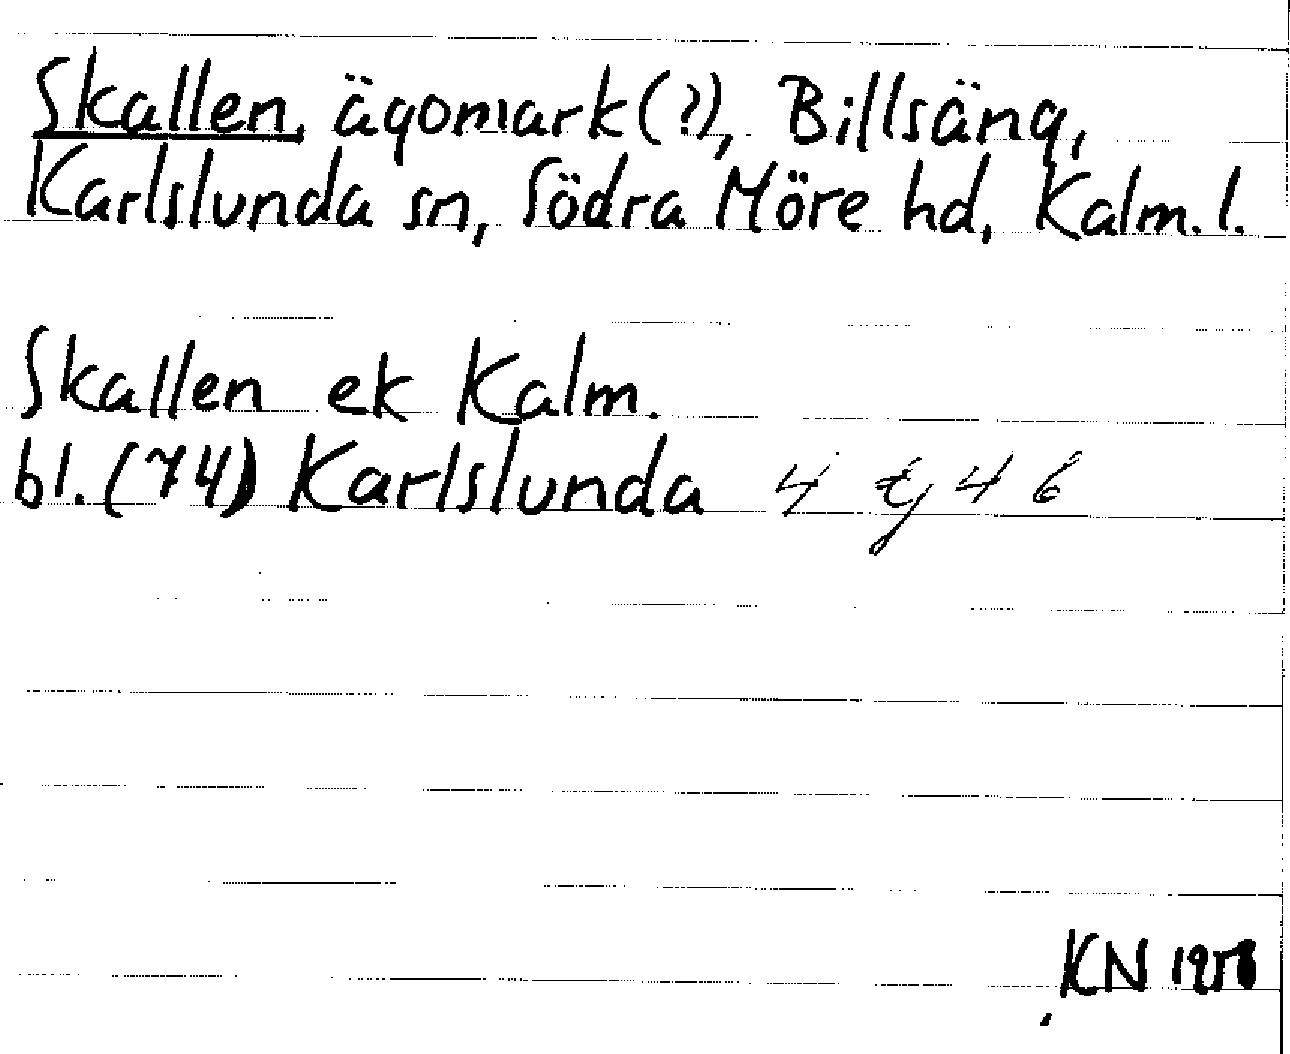 Skallen, ägomark (?), Billsäng,
Karlslunda sn, Södra Möre hd, Kalm. l.
Skallen ek Kalm.
bl. (74) Karlslunda 4 g 4 6
KN